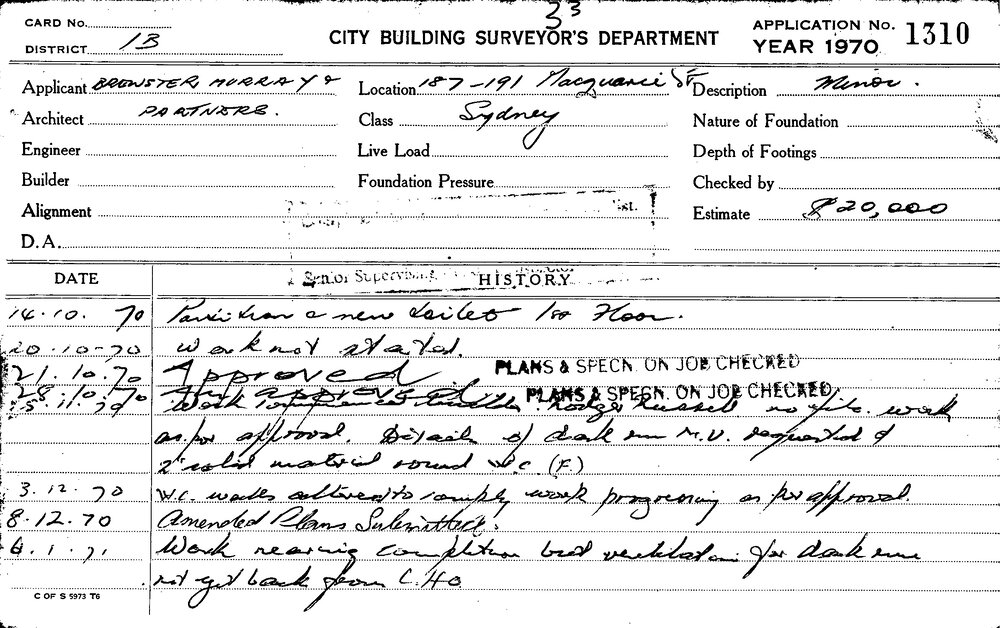 33
CARD No.
DISTRICT 1B
CITY BUILDING SURVEYOR'S DEPARTMENT
APPLICATION No. 1310
YEAR 1970
Applicant BREWSTER MURRAY &
Location 187-191 Macquarie St
Description Minor.
Architect PARTNERS.
Class Sydney
Nature of Foundation
Engineer
Live Load
Depth of Footings
Builder
Foundation Pressure
Checked by
Alignment
Estimate $20,000
D.A.
Senior Supervising
DATE HISTORY
14.10.70 Partition a new toilet 1st Floor.
20.10-70 Work not started.
21.10.70 Approved PLANS & SPECN. ON JOB CHECKED
28.10.70 approved PLANS & SPECN. ON JOB CHECKED
Work commenced Builder Rodger Russell no file. work
as per approval. Details of dark rm M.V. requested &
2" solid material round W.C. (F.)
3.12.70 W.C. walls altered to comply work progressing as per approval.
8.12.70 Amended Plans Submitted.
6.1.71 Work nearing completion but ventilation for dark rm
not yet back from C.H.O.
C OF S 5973 T6